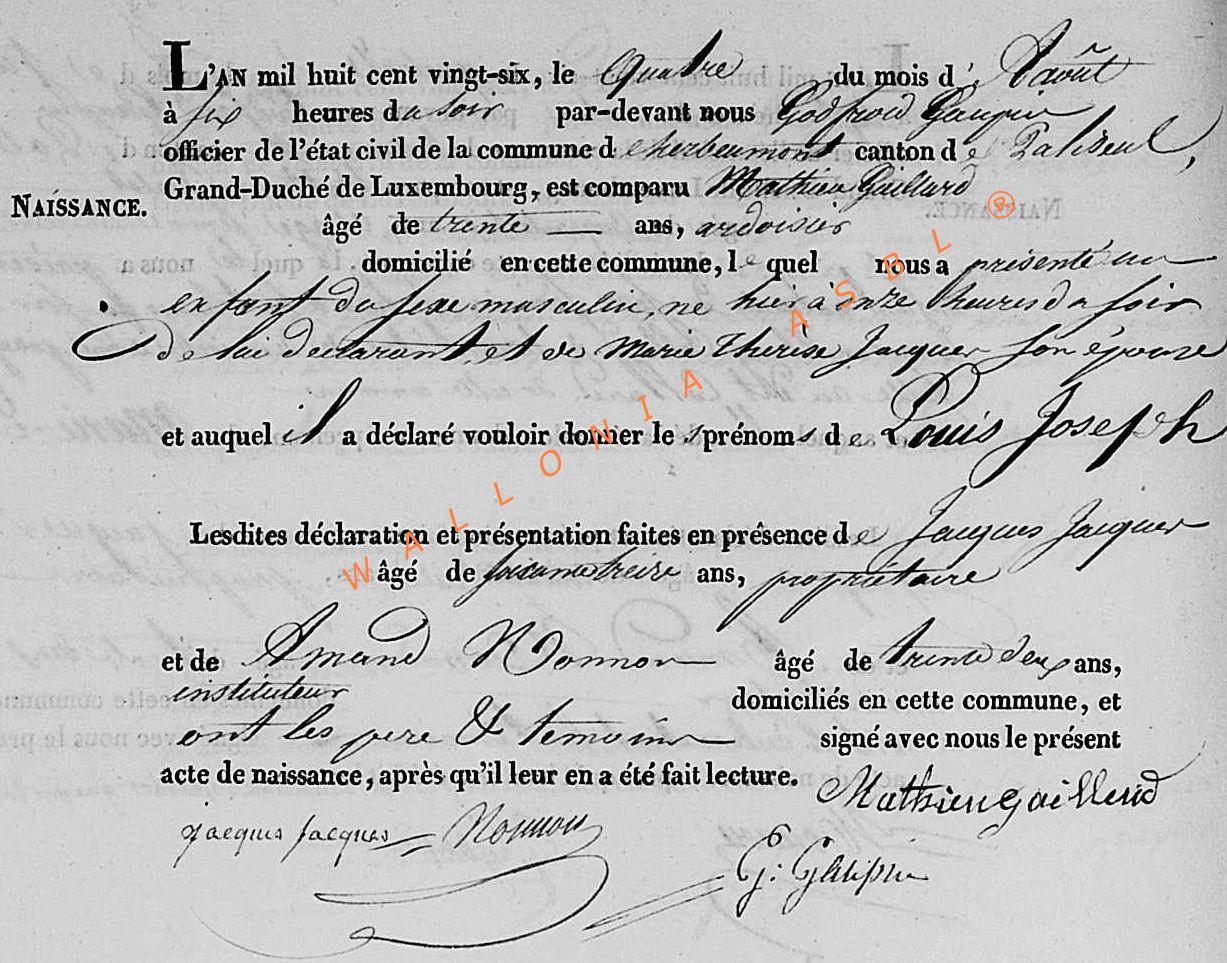 L'AN mil huit cent vingt-six, le quatre du mois d' Août
à six heures du soir par-devant nous Godfroid Gaupin
officier de l'état civil de la commune d'herbeumont canton de Paliseul,
Grand-Duché de Luxembourg, est comparu Mathieu Gaillard
NAISSANCE.
âgé de trente — ans, ardoisier
domicilié en cette commune, le quel nous a présenté un
enfant du sexe masculin, né hier à onze heures du soir
de lui déclarant et de Marie Therèse Jacques son épouse
et auquel il a déclaré vouloir donner les prénoms de Louis Joseph
Lesdites déclaration et présentation faites en présence de Jacques Jacques
âgé de soixante treize ans, propriétaire
et de Amand Nonnon âgé de trente deux ans,
instituteur domiciliés en cette commune, et
ont les pere & temoins signé avec nous le présent
acte de naissance, après qu'il leur en a été fait lecture.
Mathieu gaillard
Jacques jacques Nonnon
G: Gaupin
WALLONIA ASBL ®